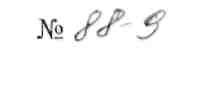 № 88-9